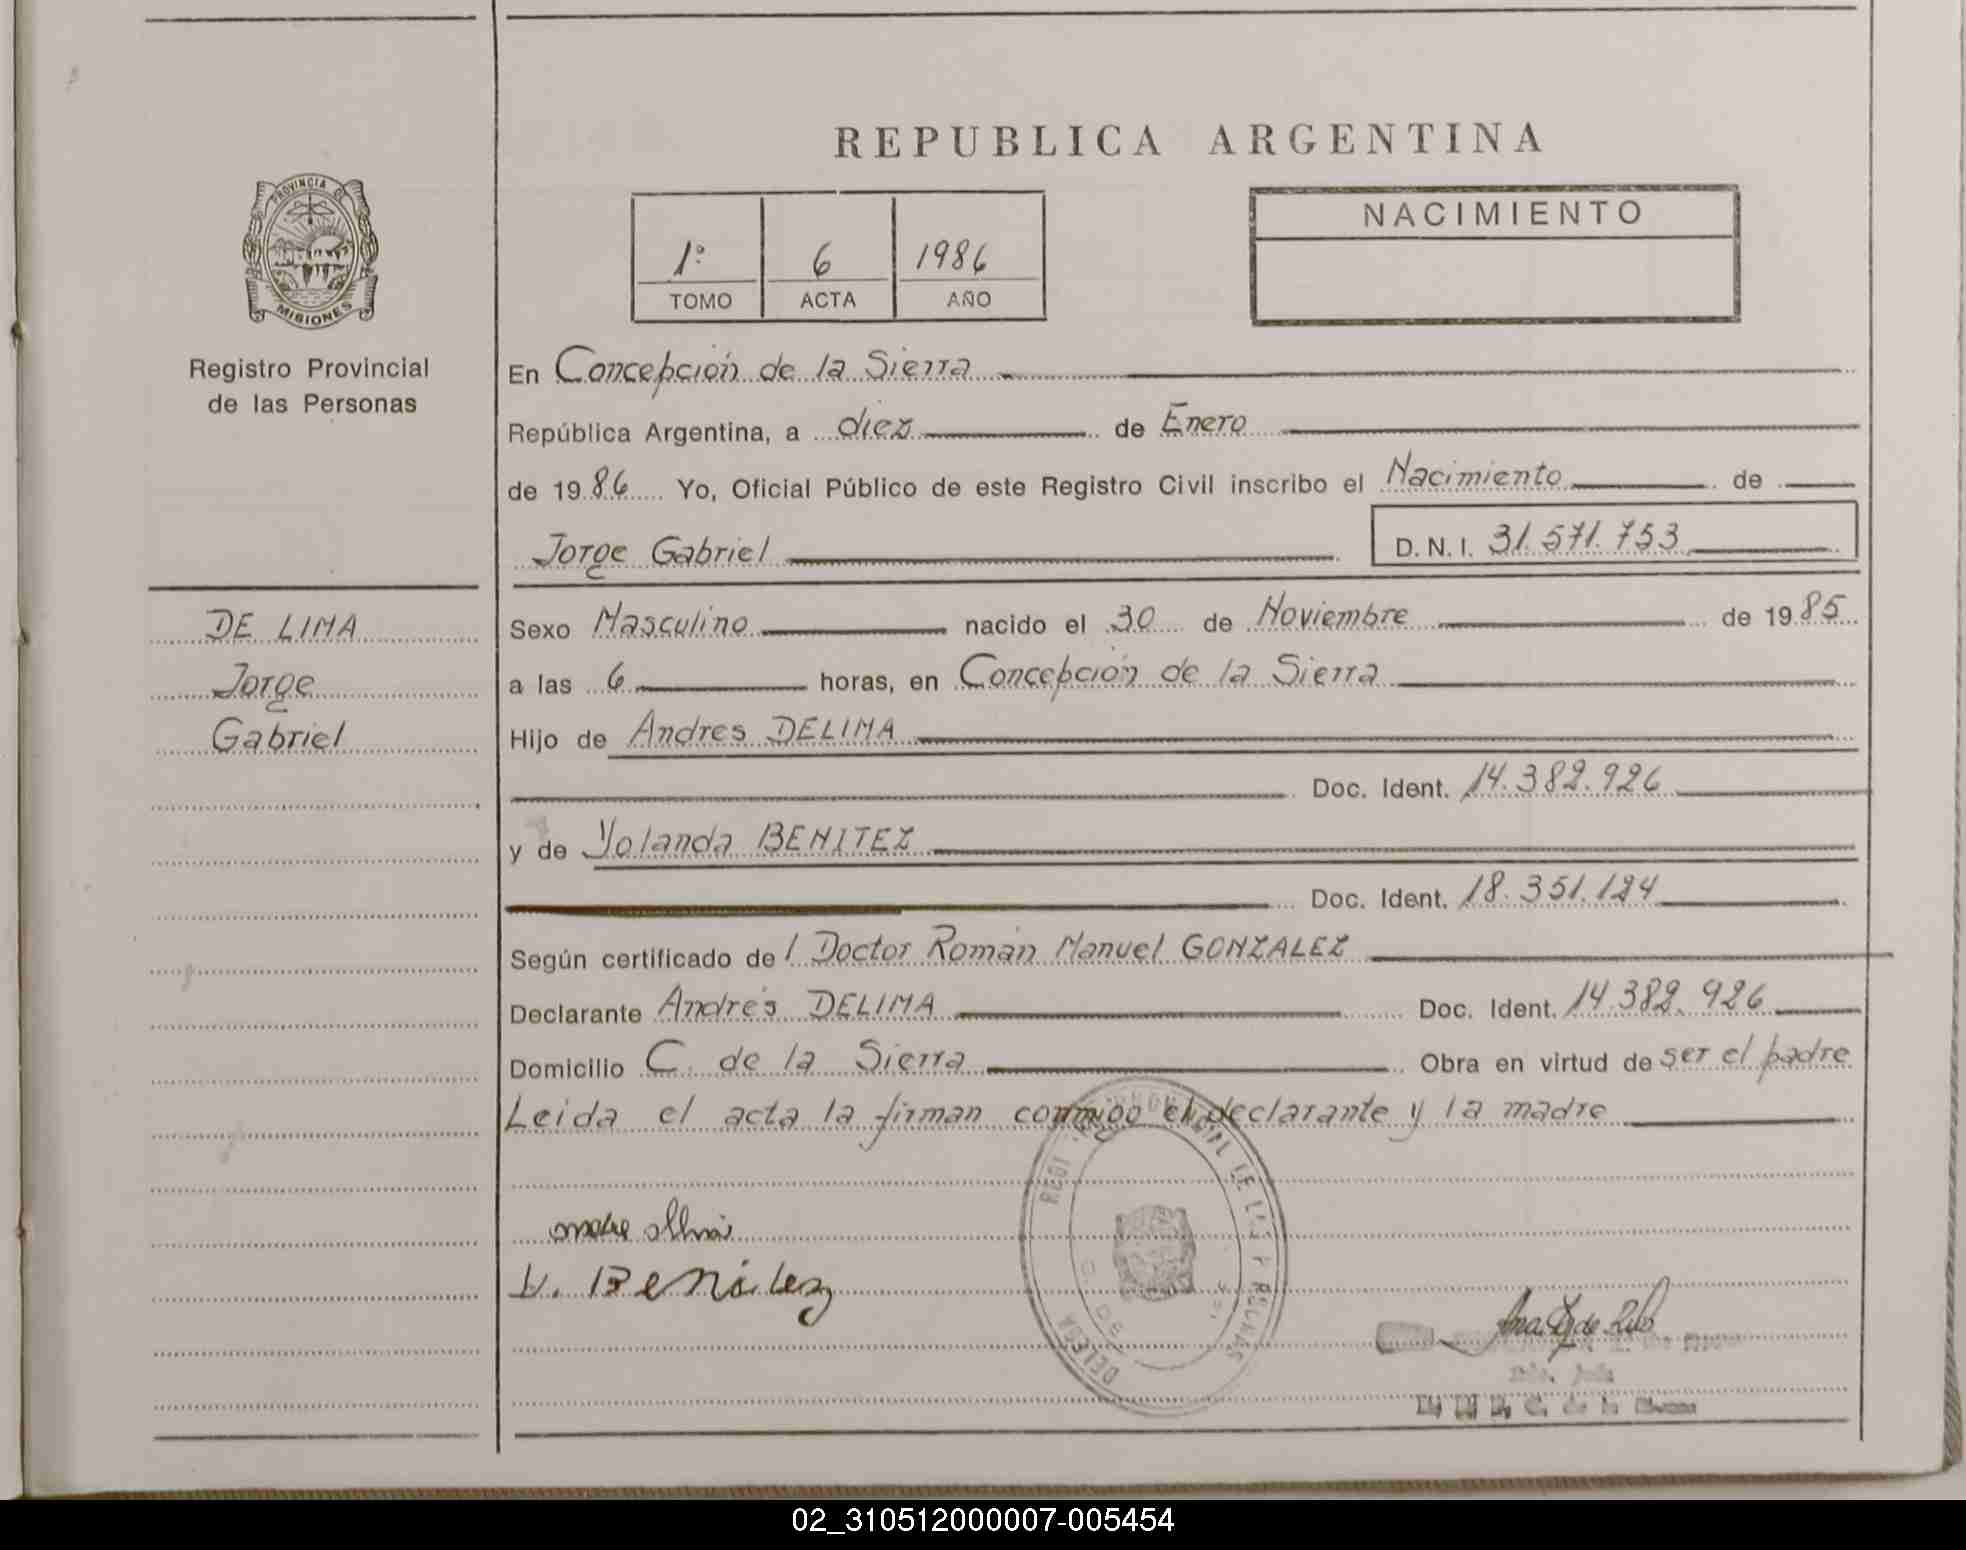 REPUBLICA ARGENTINA
PROVINCIA DE
MISIONES
Registro Provincial
de las Personas
1º 6 1986
TOMO ACTA AÑO
NACIMIENTO
En Concepción de la Sierra
República Argentina, a diez de Enero
de 1986 Yo, Oficial Público de este Registro Civil inscribo el Nacimiento de
Jorge Gabriel D.N.I. 31.571.753
DE LIMA
Jorge
Gabriel
Sexo Masculino nacido el 30 de Noviembre de 1985
a las 6 horas, en Concepción de la Sierra
Hijo de Andres DELIMA
Doc. Ident. 14.382.926
y de Yolanda BENITEZ
Doc. Ident. 18.351.124
Según certificado de l Doctor Román Manuel GONZALEZ
Declarante Andrés DELIMA Doc. Ident. 14.382.926
Domicilio C. de la Sierra Obra en virtud de ser el padre
Leida el acta la firman conmigo el declarante y la madre
02_310512000007-005454